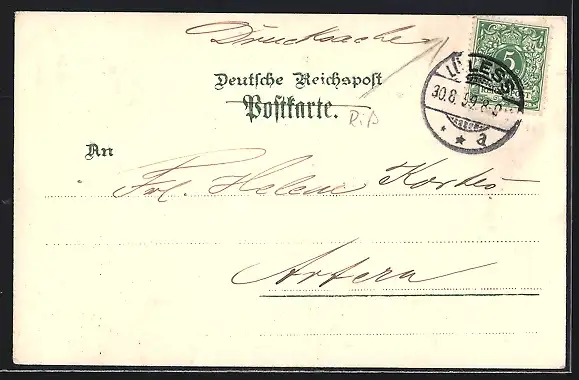 Drucksache
Deutsche Reichspost
Postkarte.
5
30.8.
a
An
Frl. Helene Kordes
Artern